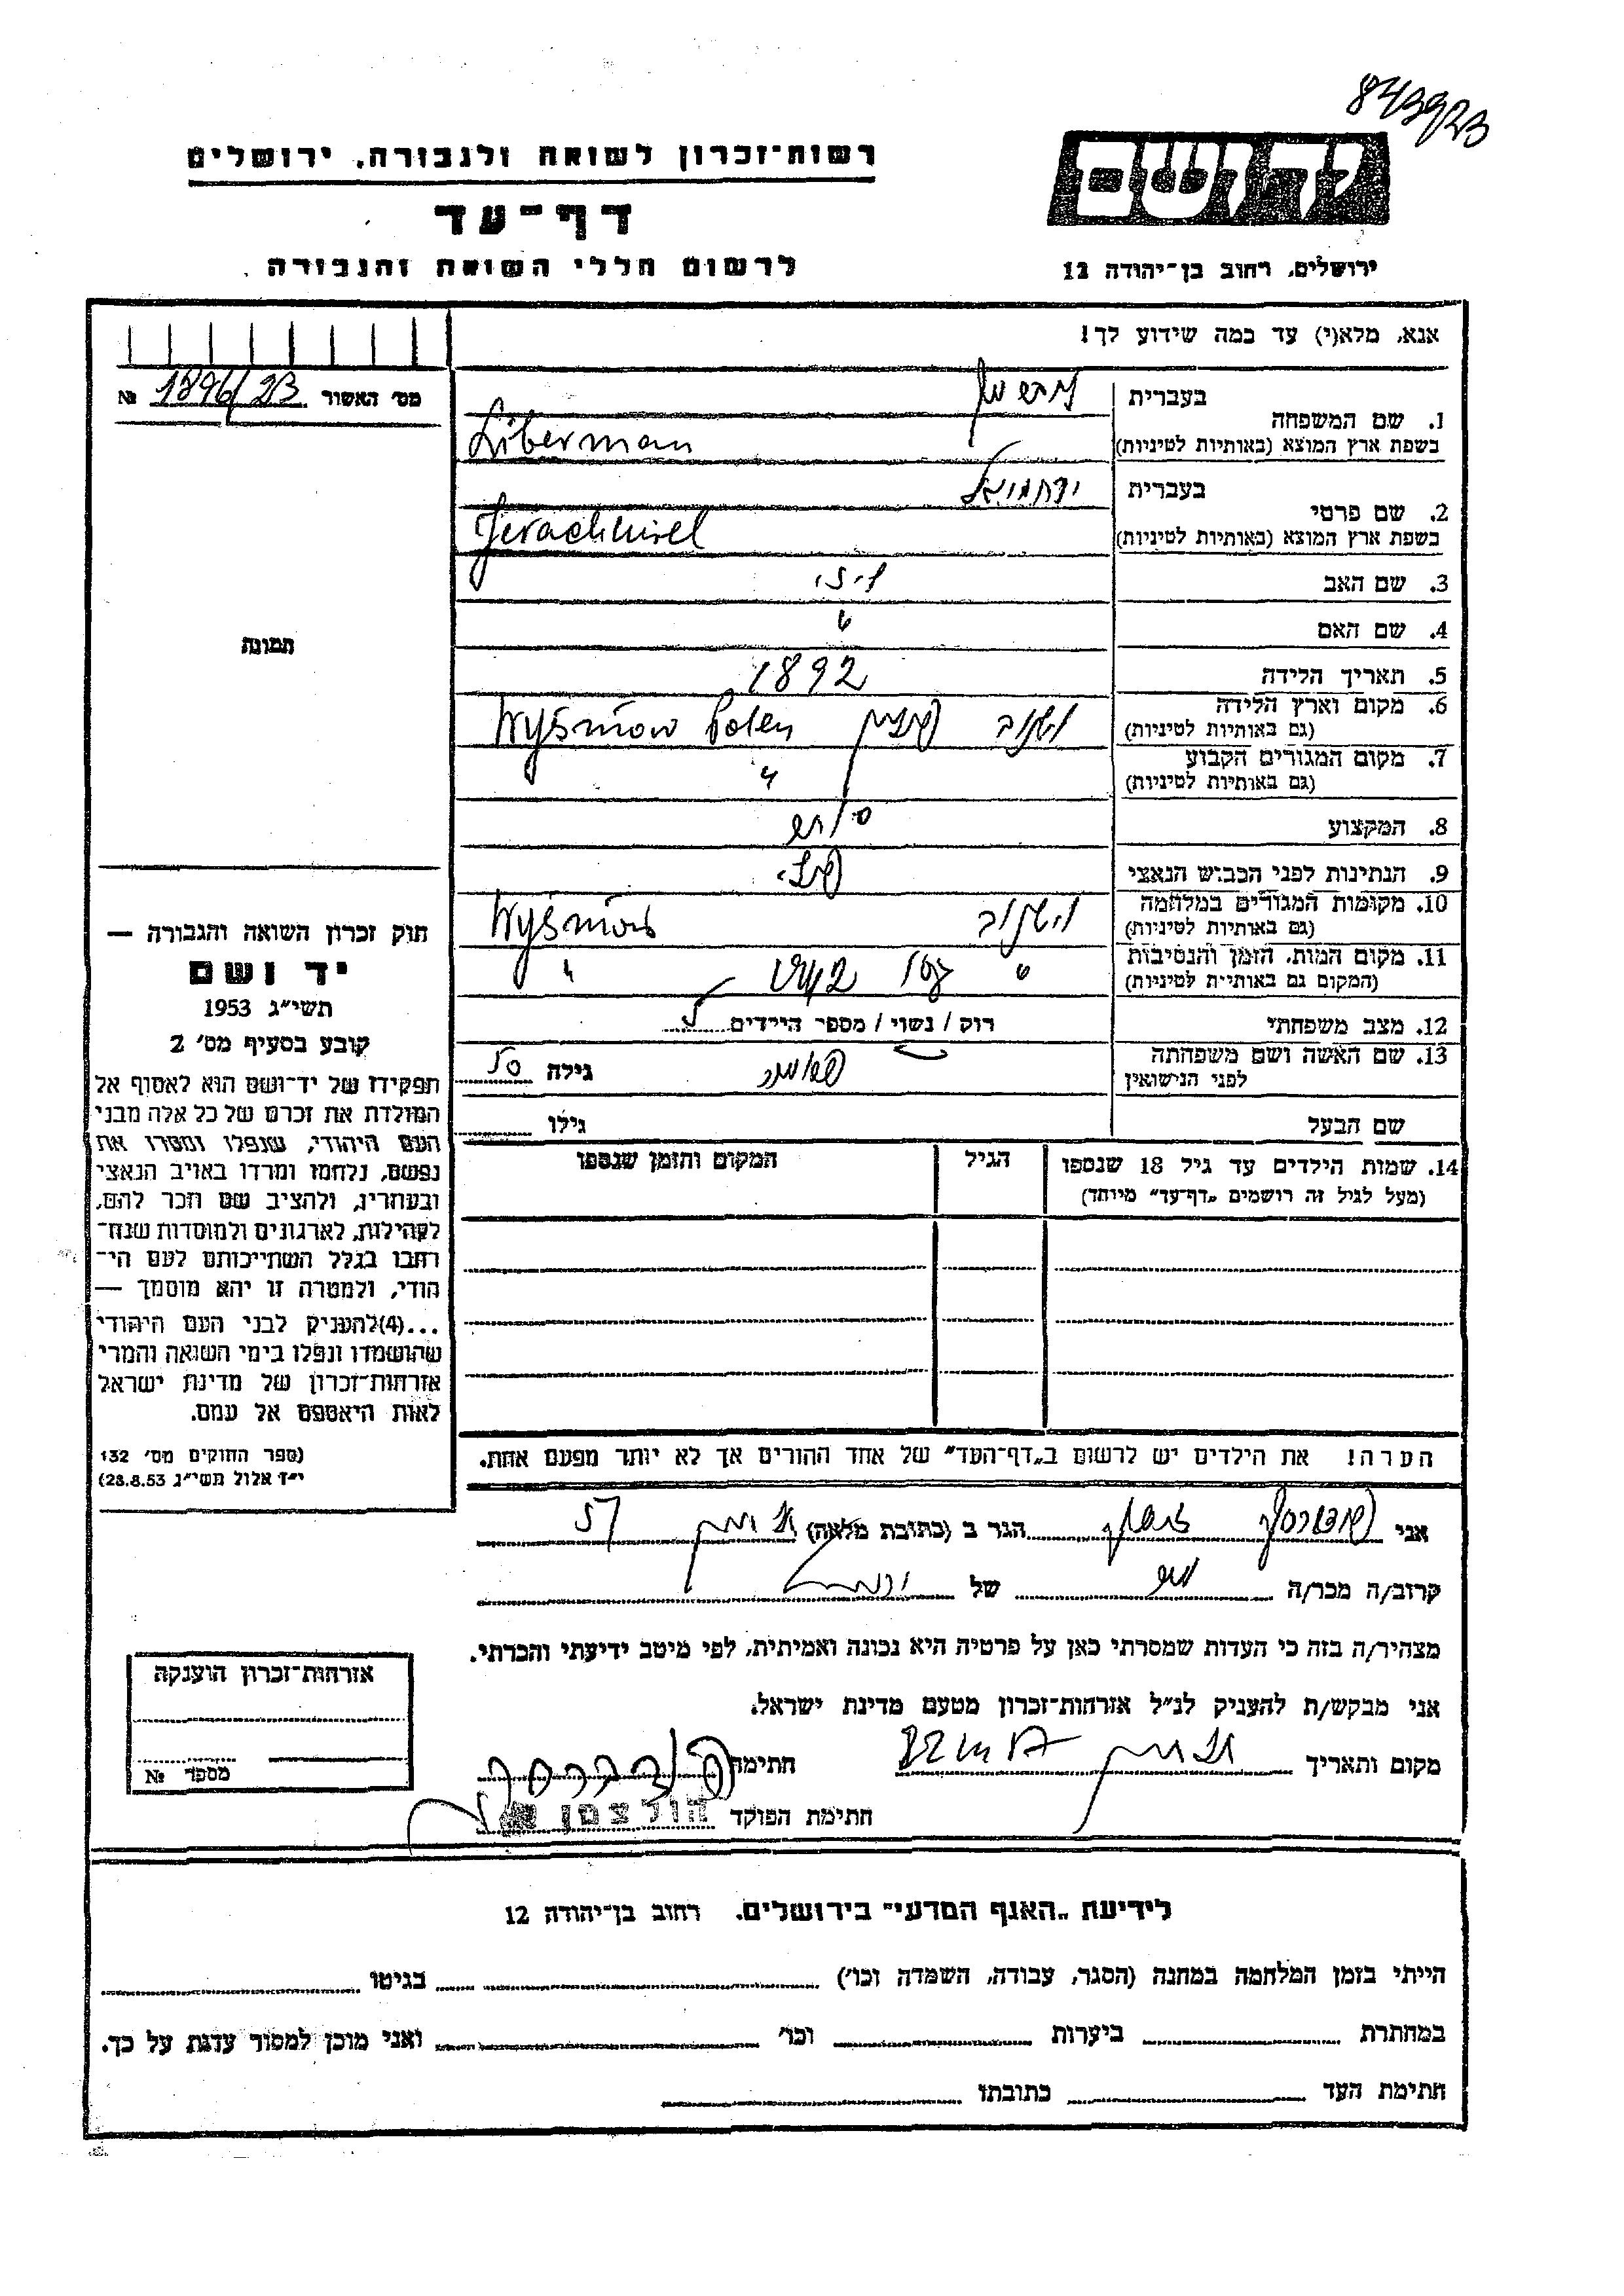 843923
רשות־זכרון לשואה ולגבורה, ירושלים
יד ושם
דף־עד
לרשום חללי השואה והגבורה
ירושלים, רחוב בן־יהודה 12
אנא, מלא(י) עד כמה שידוע לך!
מס׳ האשור 1896/23 №
1. שם המשפחה
בעברית ליברמן
בשפת ארץ המוצא (באותיות לטיניות) Liberman
2. שם פרטי
בעברית ירחמיאל
בשפת ארץ המוצא (באותיות לטיניות) Jerachmiel
3. שם האב
4. שם האם "
5. תאריך הלידה 1892
6. מקום וארץ הלידה
(גם באותיות לטיניות) פולין Wyśmów Polen
7. מקום המגורים הקבוע
(גם באותיות לטיניות) "
8. המקצוע סוחר
9. הנתינות לפני הכבוש הנאצי פולני
10. מקומות המגורים במלחמה
(גם באותיות לטיניות)
11. מקום המות, הזמן והנסיבות
(המקום גם באותיות לטיניות) " "
12. מצב משפחתי רוק / נשוי / מספר הילדים 5
13. שם האשה ושם משפחתה
לפני הנישואין גילה 50
שם הבעל גילו
14. שמות הילדים עד גיל 18 שנספו
(מעל לגיל זה רושמים „דף־עד״ מיוחד)
הגיל
המקום והזמן שנספו
הערה! את הילדים יש לרשום ב„דף־העד״ של אחד ההורים אך לא יותר מפעם אחת.
תמונה
חוק זכרון השואה והגבורה —
יד ושם
תשי״ג 1953
קובע בסעיף מס׳ 2
תפקידו של יד־ושם הוא לאסוף אל
המולדת את זכרם של כל אלה מבני
העם היהודי, שנפלו ומסרו את
נפשם, נלחמו ומרדו באויב הנאצי
ובעוזריו, ולהציב שם וזכר להם,
לקהילות, לארגונים ולמוסדות שנח־
רבו בגלל השתייכותם לעם הי־
הודי, ולמטרה זו יהא מוסמך —
...(4)להעניק לבני העם היהודי
שהושמדו ונפלו בימי השואה והמרי
אזרחות־זכרון של מדינת ישראל
לאות היאספם אל עמם.
(ספר החוקים מס׳ 132
י״ז אלול תשי״ג 28.8.53)
אני הגר ב (כתובת מלאה)
קרוב/ה מכר/ה של
מצהיר/ה בזה כי העדות שמסרתי כאן על פרטיה היא נכונה ואמיתית, לפי מיטב ידיעתי והכרתי.
אני מבקש/ת להעניק לנ״ל אזרחות־זכרון מטעם מדינת ישראל.
מקום ותאריך חתימה
חתימת הפוקד הולצמן
אזרחות־זכרון הוענקה
מספר №
לידיעת „האגף המדעי״ בירושלים, רחוב בן־יהודה 12
הייתי בזמן המלחמה במחנה (הסגר, עבודה, השמדה וכו׳) בגיטו
במחתרת ביערות וכו׳ ואני מוכן למסור עדות על כך.
חתימת העד כתובתו